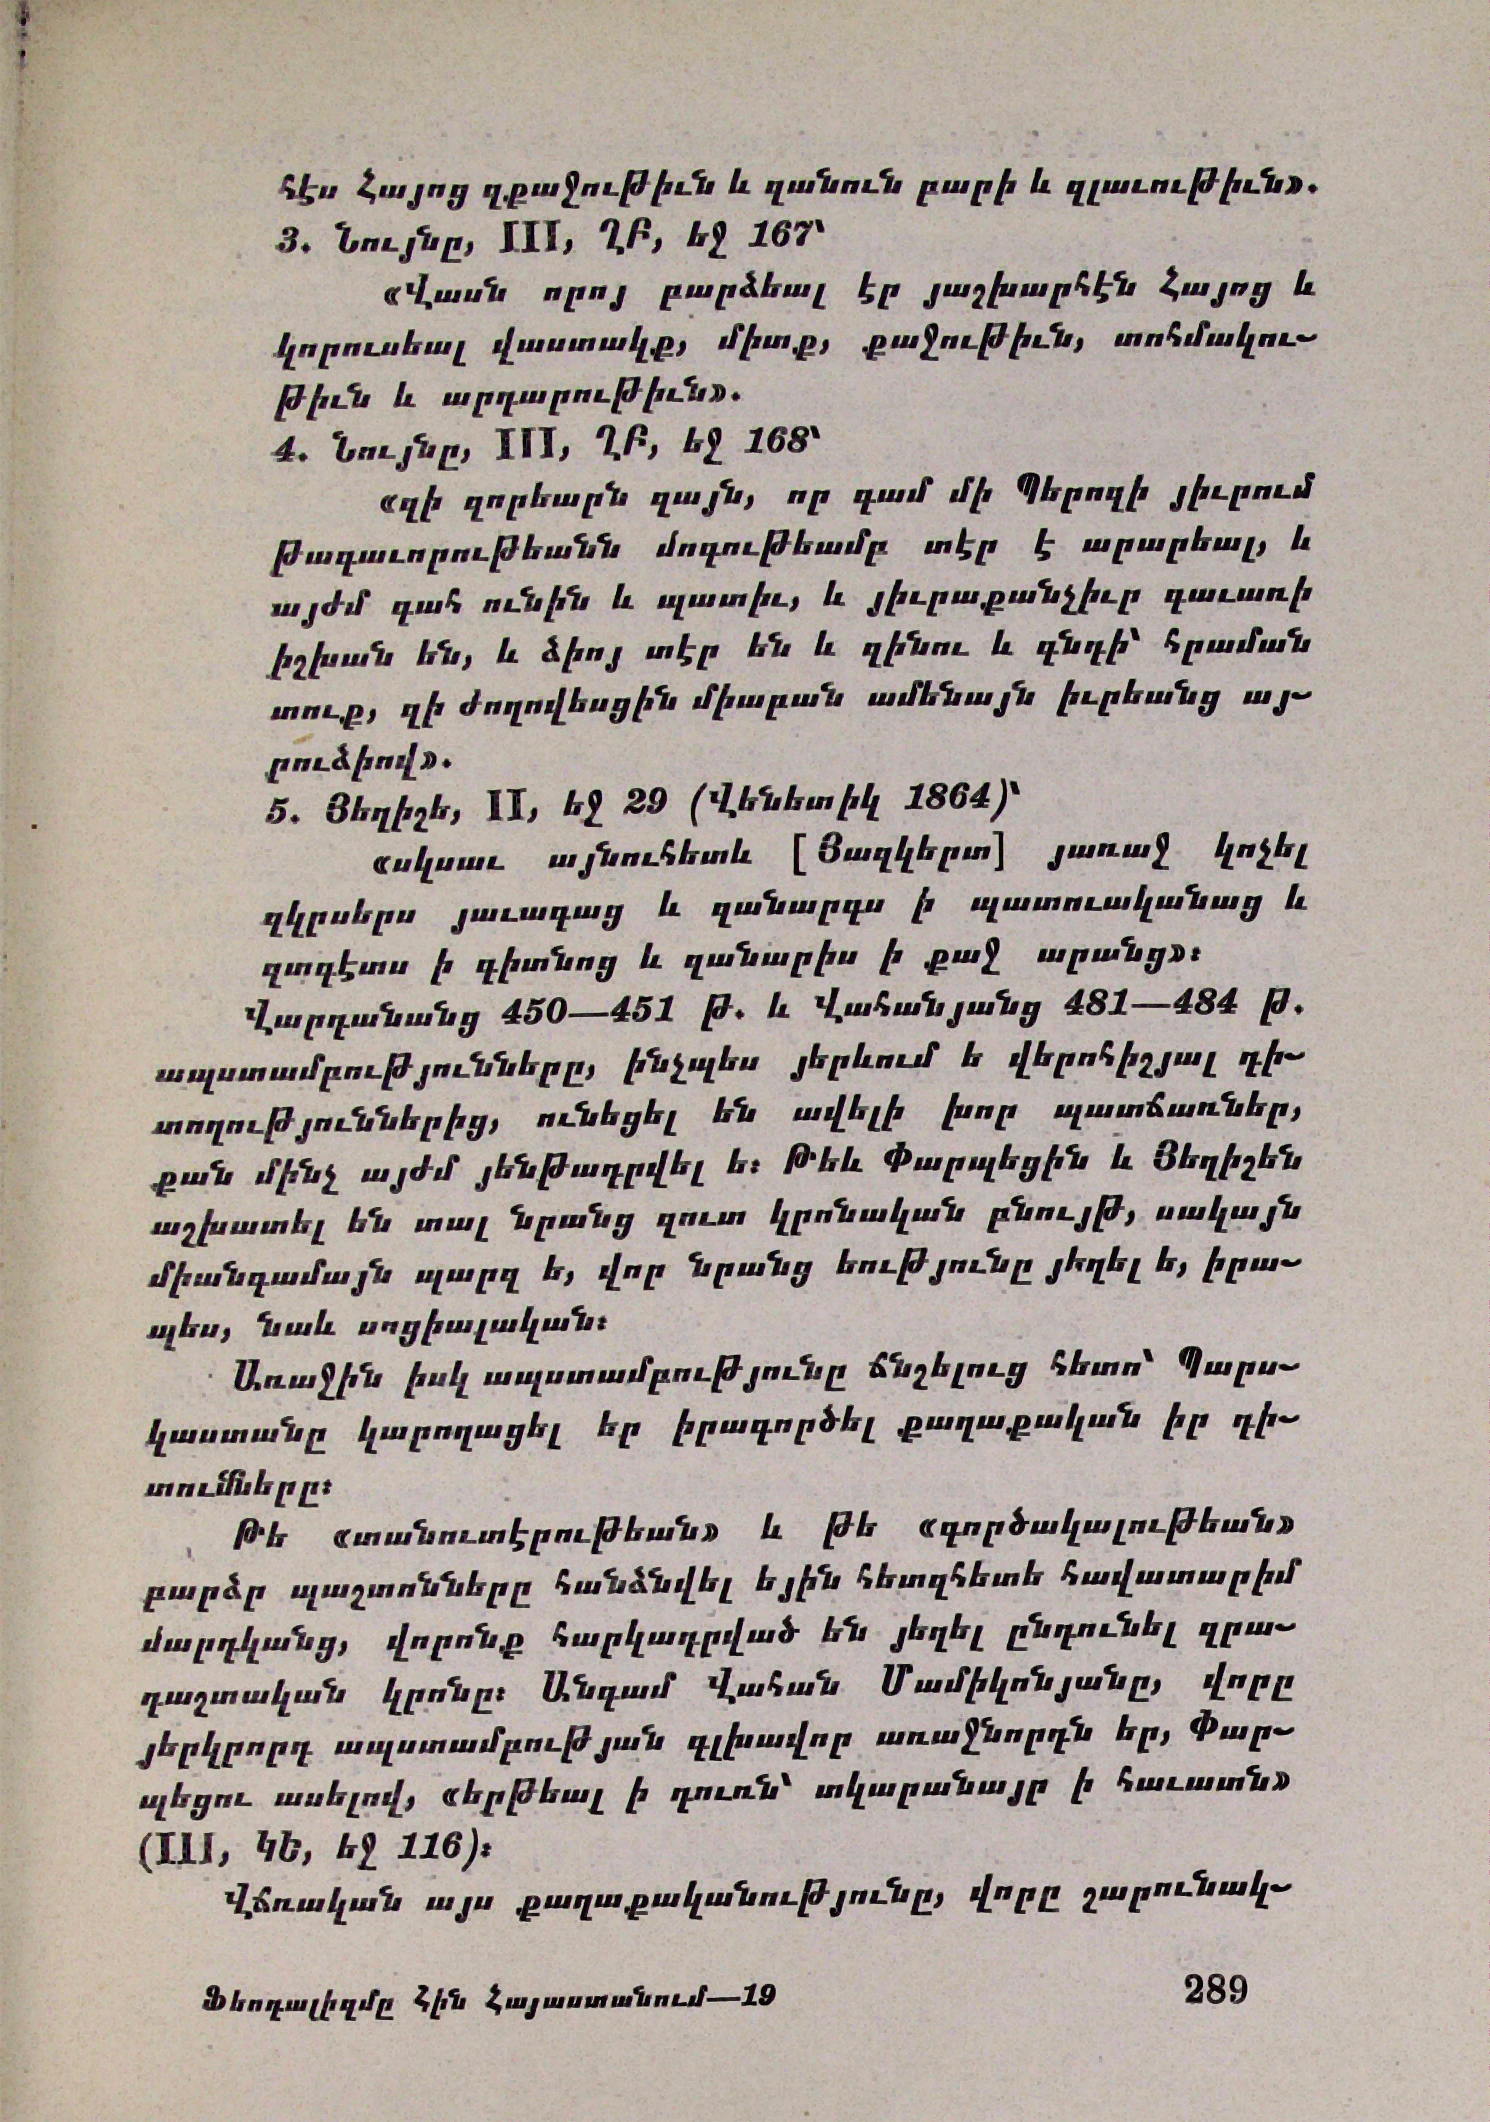 հէս Հայոց զքաջութիւն և զանուն բարի և զլաւութիւն».
3. Նույնը, III, ՂԲ, եջ 167՝
«Վասն որոյ բարձեալ էր յաշխարհէն Հայոց և
կորուսեալ վաստակք, միտք, քաջութիւն, տոհմակու-
թիւն և արդարութիւն».
4. Նույնը, III, ՂԲ, եջ 168՝
«զի զորեարն զայն, որ գամ մի Պերոզի յիւրում
թագաւորութեանն մոգութեամբ տէր է արարեալ, և
այժմ գահ ունին և պատիւ, և յիւրաքանչիւր գաւառի
իշխան են, և ձիոյ տէր են և զինու և գնդի՝ հրաման
տուք, զի ժողովեսցին միաբան ամենայն իւրեանց այ-
րուձիով».
5. Յեղիշե, II, եջ 29 (Վենետիկ 1864)՝
«սկսաւ այնուհետև [Յազկերտ] յառաջ կոչել
զկրսերս յաւագաց և զանարգս ի պատուականաց և
զտգէտս ի գիտնոց և զանարիս ի քաջ արանց»։
Վարդանանց 450—451 թ. և Վահանյանց 481—484 թ.
ապստամբությունները, ինչպես յերևում ե վերոհիշյալ դի-
տողություններից, ունեցել են ավելի խոր պատճառներ,
քան մինչ այժմ յենթադրվել ե։ Թեև Փարպեցին և Յեղիշեն
աշխատել են տալ նրանց զուտ կրոնական բնույթ, սակայն
միանգամայն պարզ ե, վոր նրանց եությունը յեղել ե, իրա-
պես, նաև սոցիալական։
Առաջին իսկ ապստամբությունը ճնշելուց հետո՝ Պարս-
կաստանը կարողացել եր իրագործել քաղաքական իր դի-
տումները։
Թե «տանուտէրութեան» և թե «գործակալութեան»
բարձր պաշտոնները հանձնվել եյին հետզհետե հավատարիմ
մարդկանց, վորոնք հարկադրված են յեղել ընդունել զրա-
դաշտական կրոնը։ Անգամ Վահան Մամիկոնյանը, վորը
յերկրորդ ապստամբության գլխավոր առաջնորդն եր, Փար-
պեցու ասելով, «երթեալ ի դուռն՝ տկարանայր ի հաւատն»
(III, ԿԵ, եջ 116)։
Վճռական այս քաղաքականությունը, վորը շարունակ-
Ֆեոդալիզմը Հին Հայաստանում—19
289